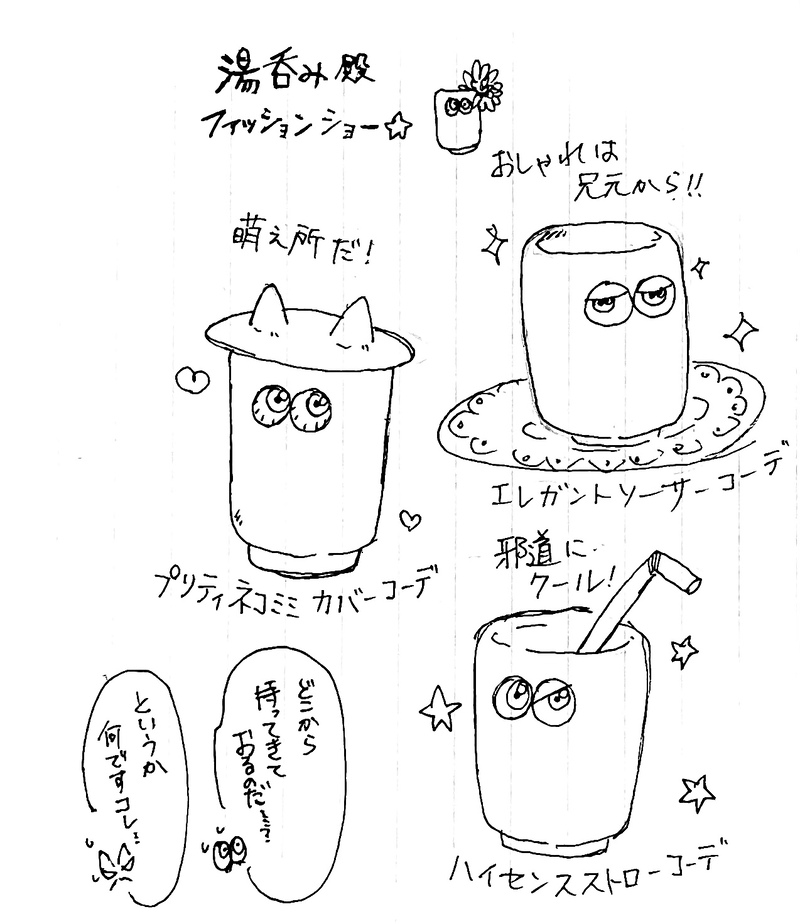 湯呑み殿
フィッションショー☆
おしゃれは
兄元から!!
萌え所だ!
エレガントソーサーコーデ
プリティネコミミカバーコーデ
邪道に
クール!
ハイセンスストローコーデ
どこから
持ってきて
おるのだ…?
というか
何ですコレ…